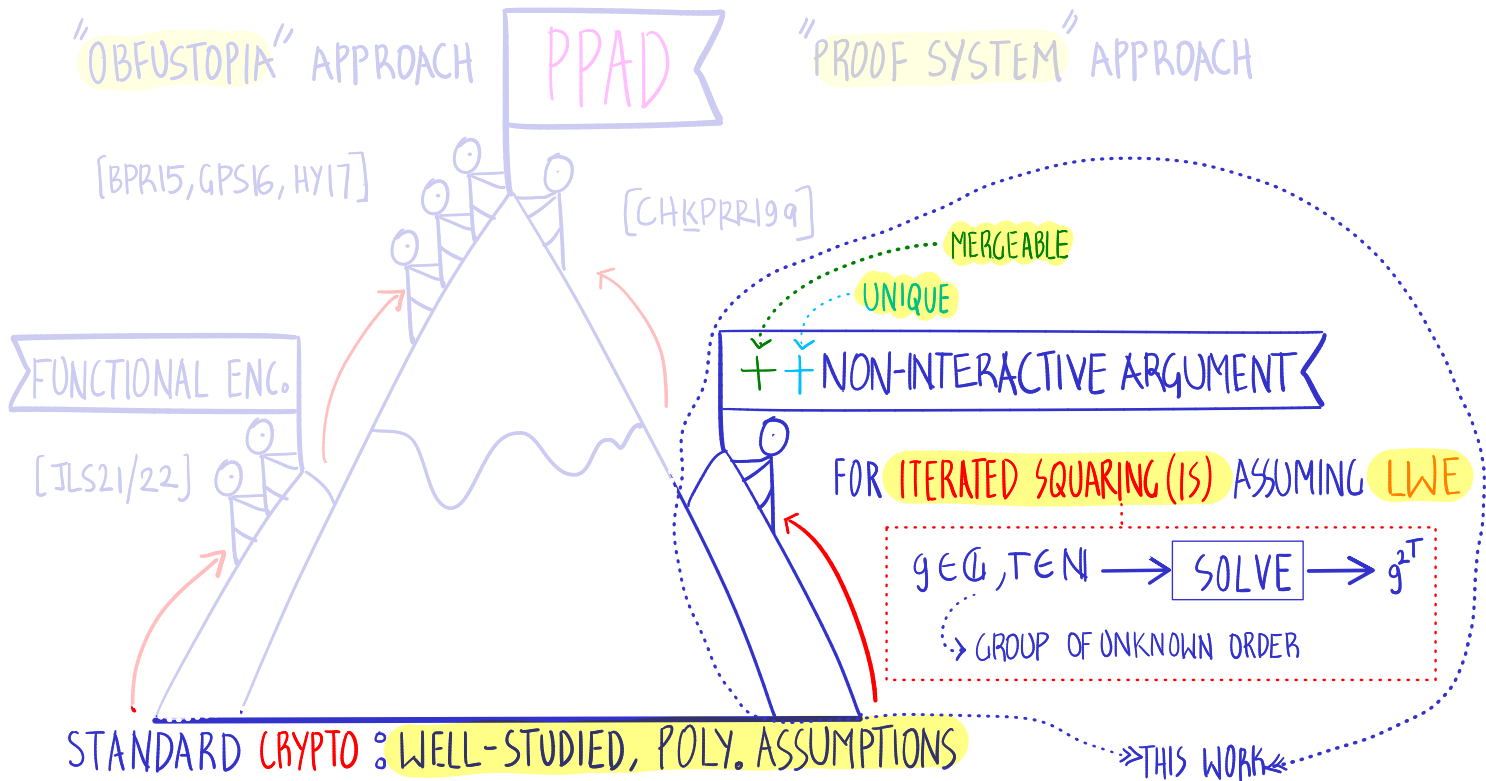 "OBFUSTOPIA" APPROACH
PPAD
"PROOF SYSTEM" APPROACH
[BPR15, GPS16, HY17]
[CHKPRR19a]
MERGEABLE
UNIQUE
FUNCTIONAL ENC.
+ + NON-INTERACTIVE ARGUMENT
[JLS21/22]
FOR ITERATED SQUARING (IS) ASSUMING LWE
g ∈ G, T ∈ ℕ → SOLVE → g^{2^T}
GROUP OF UNKNOWN ORDER
STANDARD CRYPTO : WELL-STUDIED, POLY. ASSUMPTIONS
THIS WORK